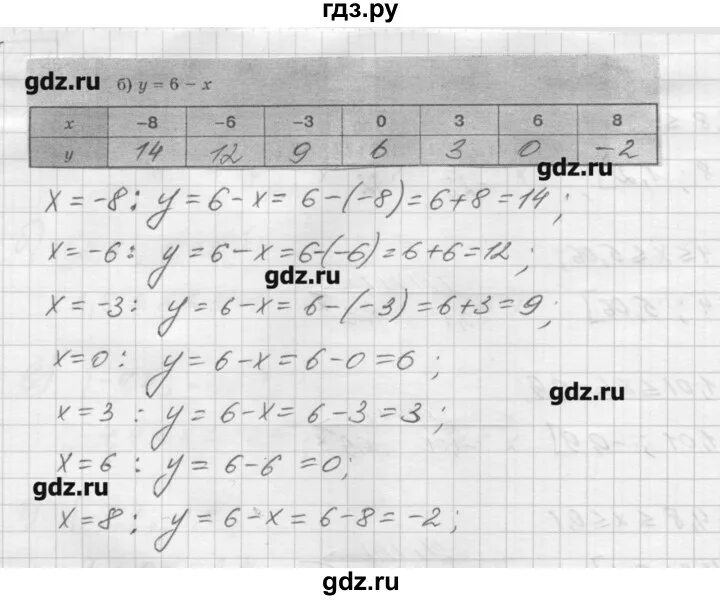 гдз.ру
gdz.ru б) y = 6 − x
x −8 −6 −3 0 3 6 8
y 14 12 9 6 3 0 −2
gdz.ru
x = −8 : y = 6 − x = 6 − (−8) = 6 + 8 = 14 ;
x = −6 : y = 6 − x = 6 − (−6) = 6 + 6 = 12 ;
gdz.ru
x = −3 : y = 6 − x = 6 − (−3) = 6 + 3 = 9 ;
x = 0 : y = 6 − x = 6 − 0 = 6 ;
gdz.ru
x = 3 : y = 6 − x = 6 − 3 = 3 ;
x = 6 : y = 6 − 6 = 0 ;
gdz.ru
x = 8 ; y = 6 − x = 6 − 8 = −2 ;
gdz.ru